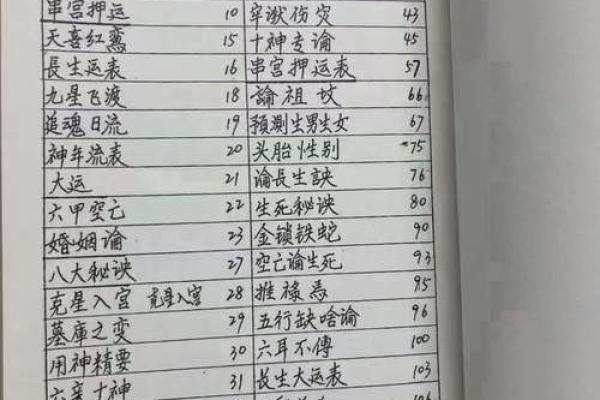 串宫押运 10 牢狱伤灾 43
天喜红鸾 15 十神专论 45
長生运表 16 串宫押运表 57
九星飞渡 18 論祖坟 66
追魂日流 19 預測生男生女 67
神年流表 20 头胎性别 75
大运 21 論長生訣 76
六甲空亡 22 生死秘诀 80
婚姻論 23 金锁铁蛇 90
八大秘诀 27 空亡论生死 93
克星入宫 克星入宫 28 推禄馬 95
墓庫之变 29 五行缺啥論 96
用神精要 30 六耳不傳 100
六亲十神 31 長生大运表 103